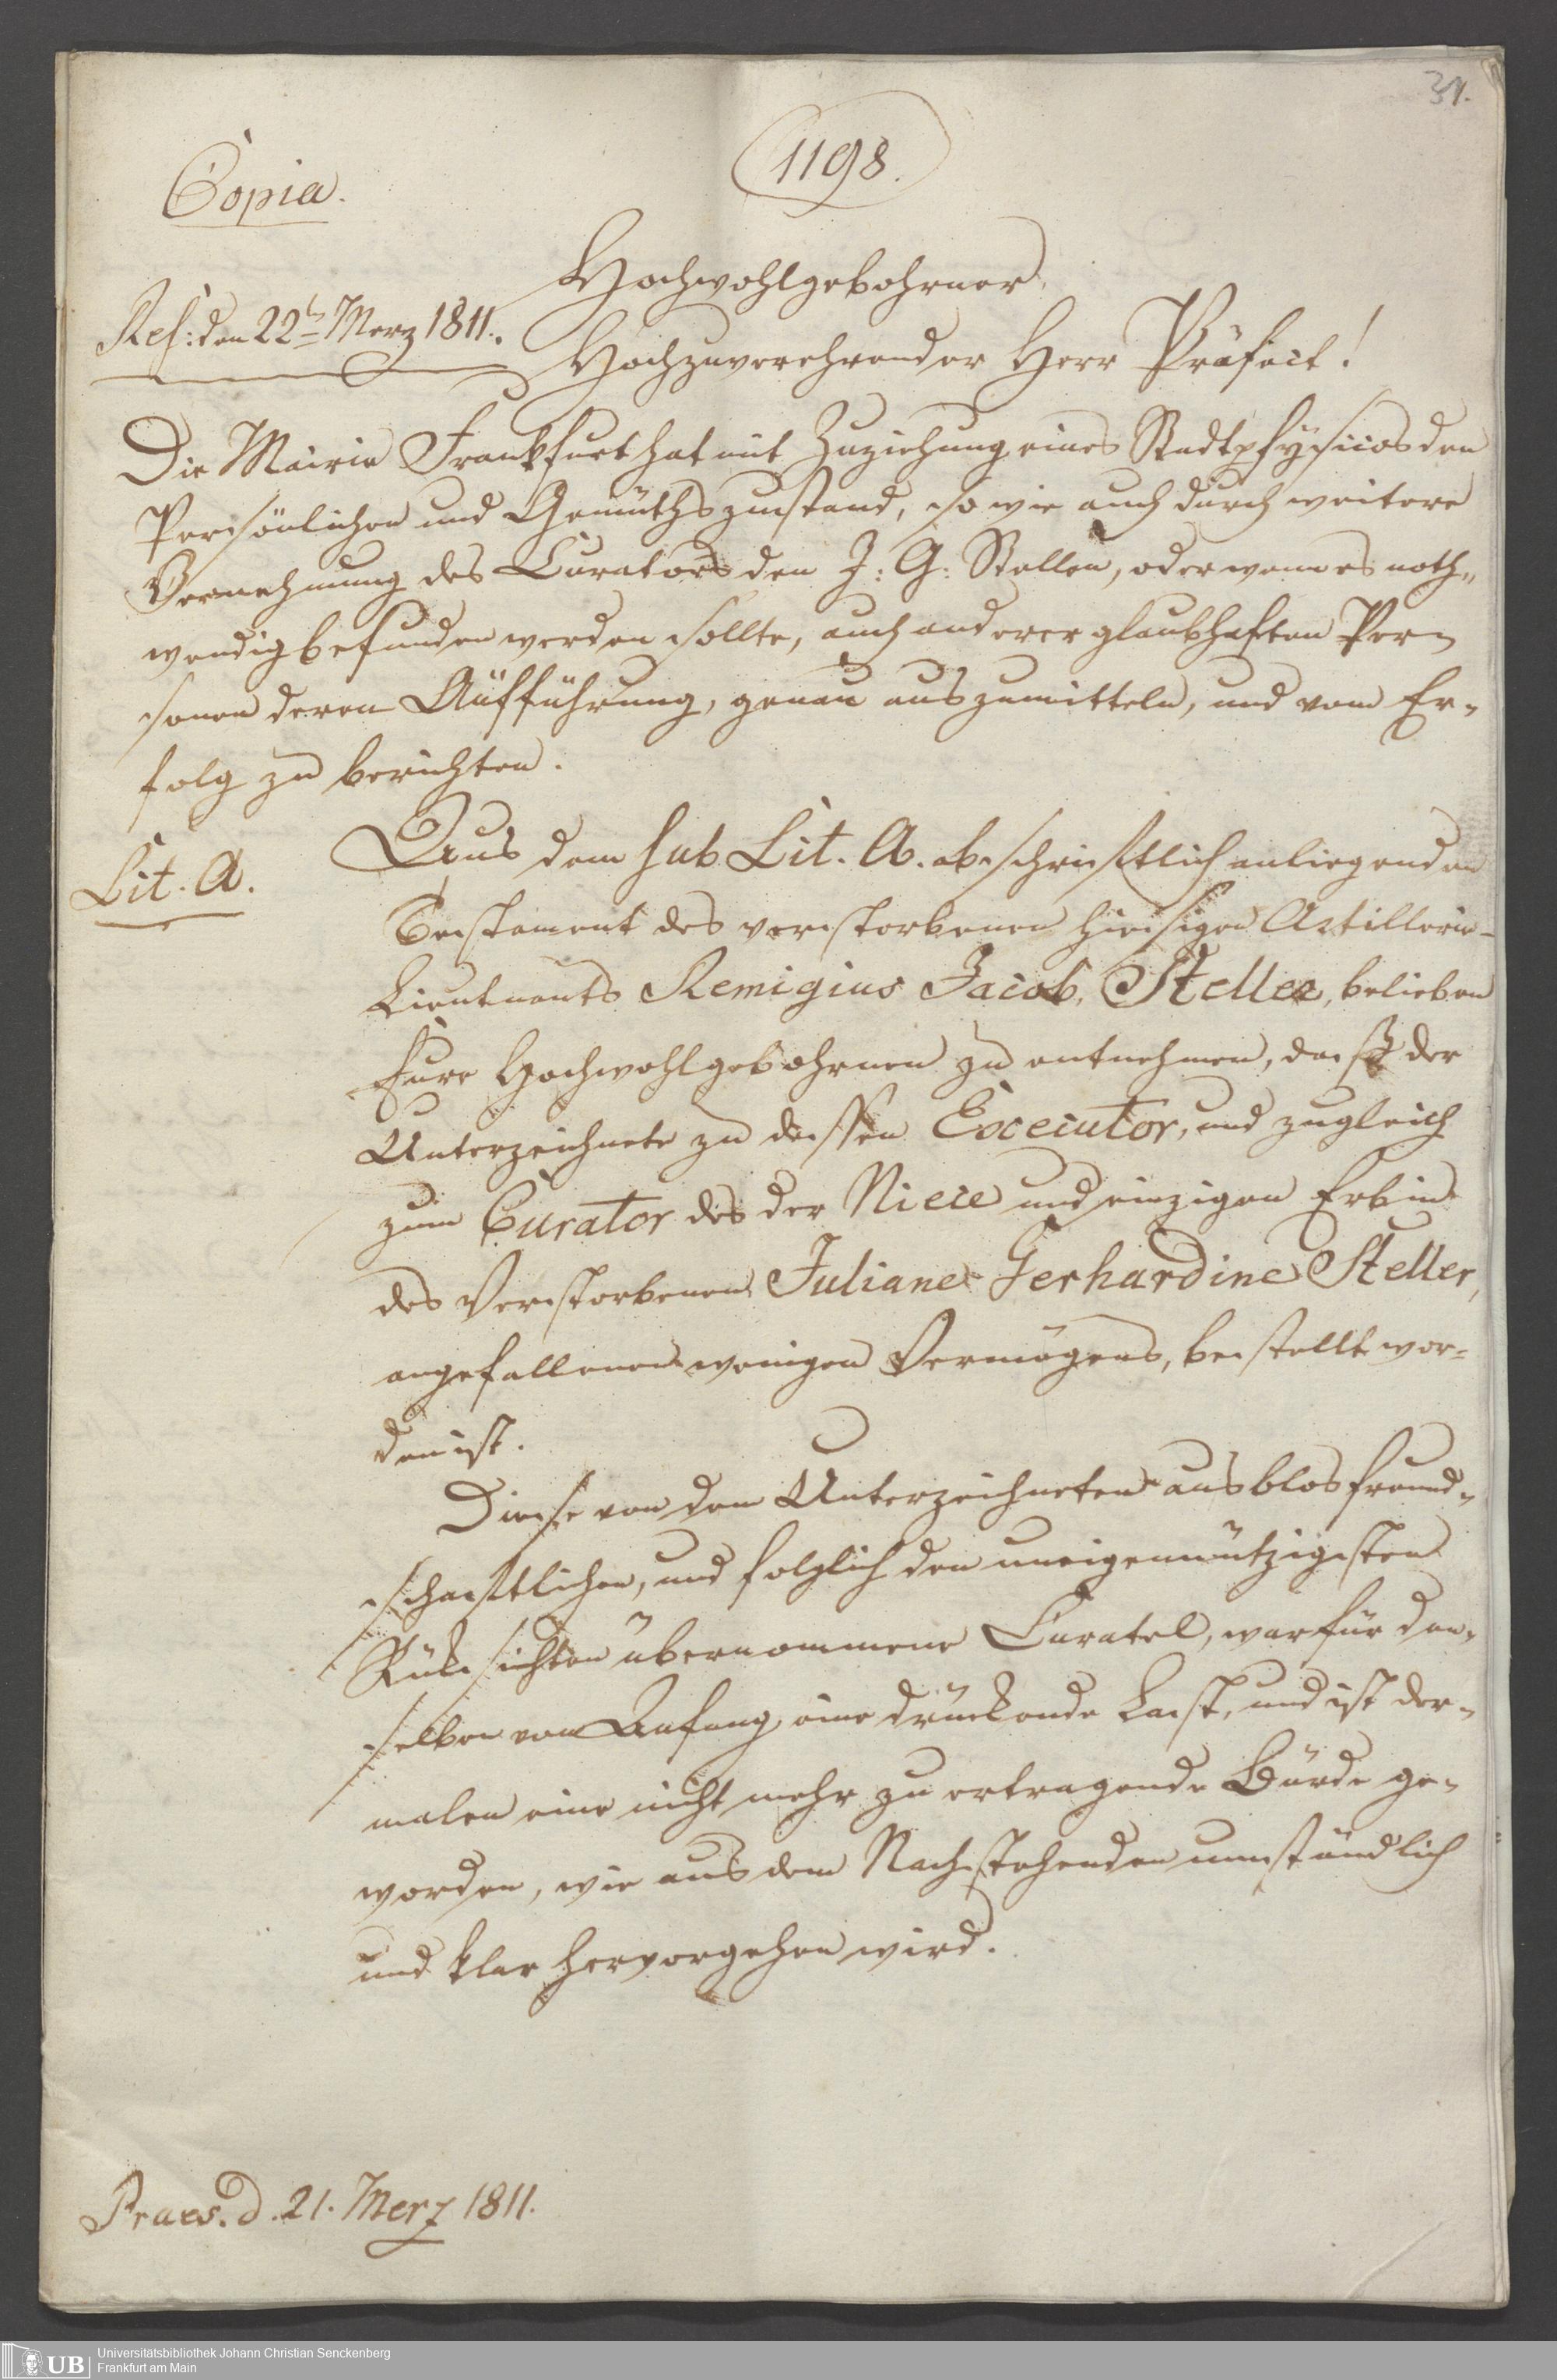 31.
1198.
Copia.
Hochwohlgebohrner,
Res: den 22t Merz 1811.
Hochzuverehrender Herr Präfect!
Die Mairie Frankfurt hat mit Zuziehung eines Stadtphysicos den
Persönlichen und Gemüthszustand, so wie auch durch weitere
Vernehmung des Curators den J: G: Stellen, oder wenn es noth„
wendig befunden werden sollte, auch anderer glaubhaften Per„
sonen deren Aufführung, genau auszumitteln, und vom Er„
folg zu berichten.
Lit. A.
Aus dem sub Lit. A. abschriftlich anliegenden
Testament des verstorbenen hiesigen Artillerie-
Lieutnants Remigius Jacob, Steller, belieben
Eure Hochwohlgebohrnen zu entnehmen, dass der
Unterzeichnete zu dessen Executor, und zugleich
zum Curator des der Niece und einzigen Erbin
des Verstorbenen Juliane Gerhardine Steller,
angefallenen wenigen Vermögens, bestellt wor=
den ist.
Diese von dem Unterzeichneten aus blos freund„
schaftlichen, und folglich den uneigennützigsten
Rüksichten übernommene Curatel, war für den„
selben von Anfang eine drückende Last, und ist der„
malen eine nicht mehr zu ertragende Bürde ge„
worden, wie aus dem Nachstehenden umständlich
und klar hervorgehen wird.
Praes. d. 21. Merz 1811.
UB
Universitätsbibliothek Johann Christian Senckenberg
Frankfurt am Main